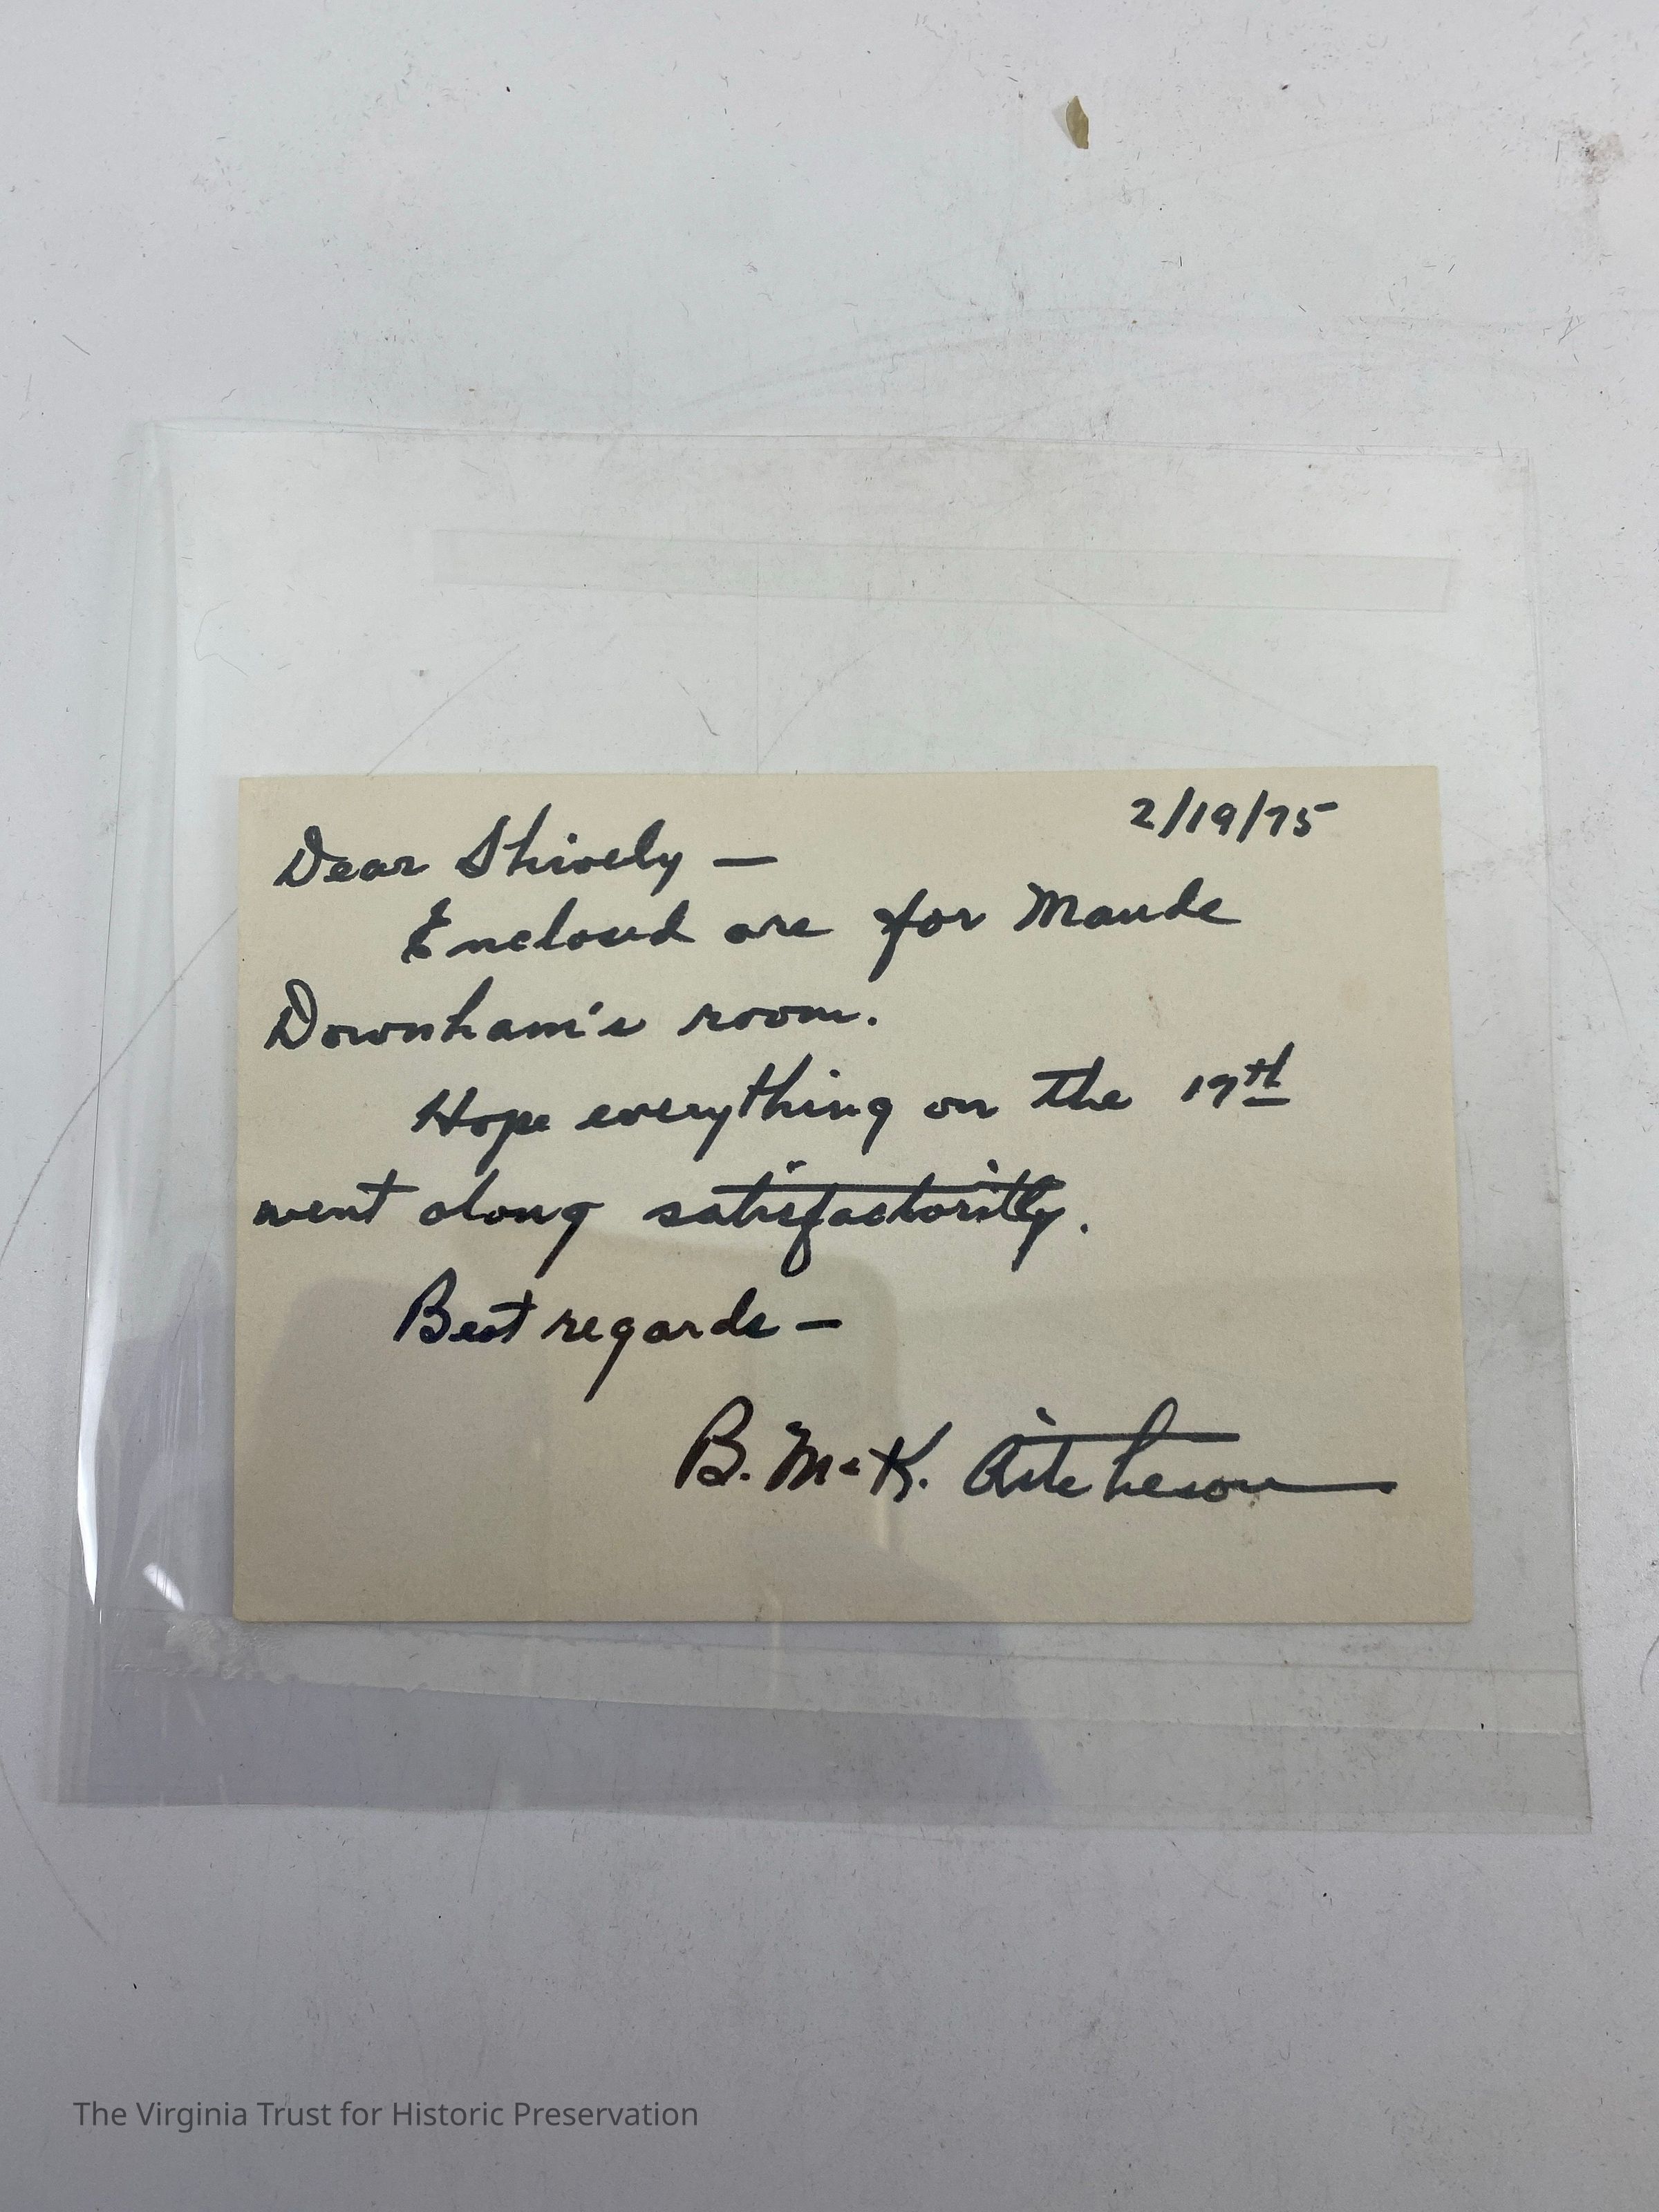 2/19/75
Dear Shively —
Enclosed are for Maude
Downham's room.
Hope everything on the 17th
went along satisfactoritly.
Best regards —
B. McK. Aitcheson
The Virginia Trust for Historic Preservation